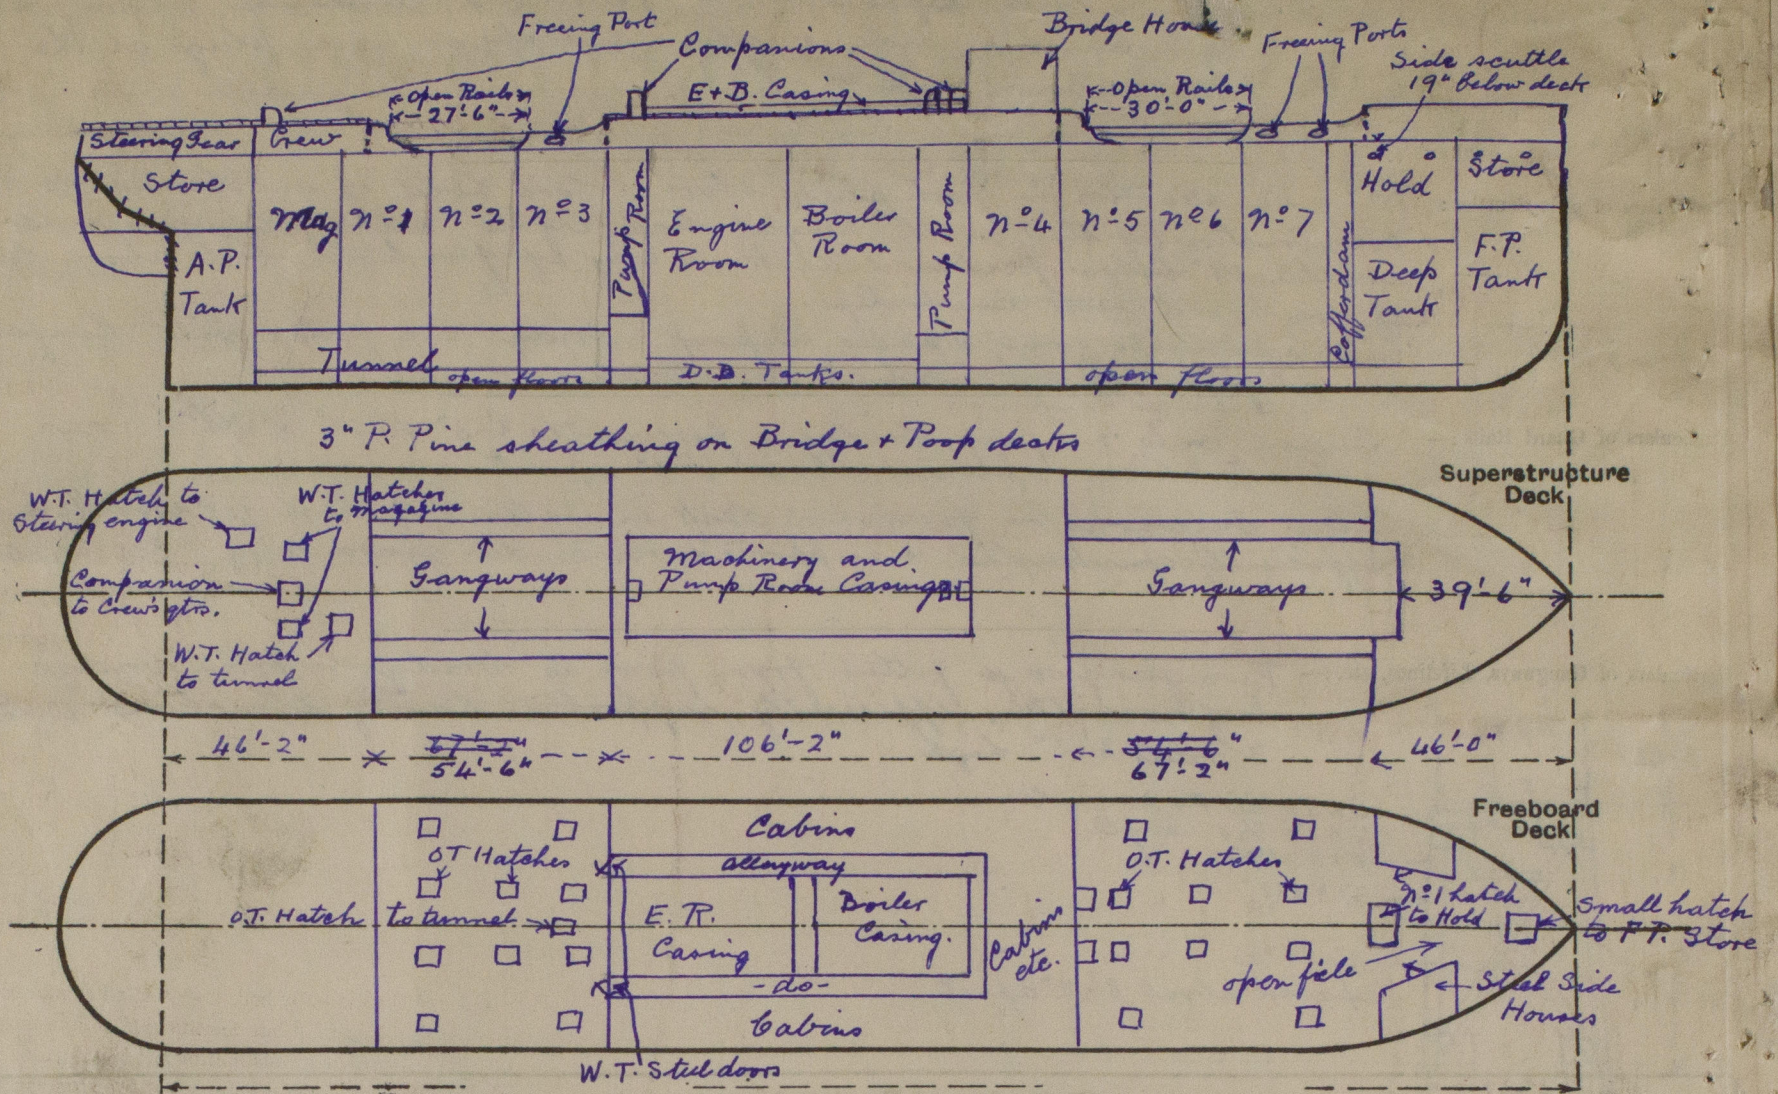 Freeing Port
Companions
Bridge House
Freeing Ports
Side scuttle
19" below deck
Open Rails
27'-6"
E+B. Casing
Open Rails
30'-0"
Steering Gear
Crew
Store
Mag
No1
No2
No3
Pump Room
Engine
Room
Boiler
Room
Pump Room
No4
No5
No6
No7
Cofferdam
Hold
Store
A.P.
Tank
Deep
Tank
F.P.
Tank
Tunnel
open floors
D.B. Tanks.
open floors
3" P. Pine sheathing on Bridge + Poop decks
Superstructure
Deck
W.T. Hatch to
Steering engine
W.T. Hatches
to magazine
Companion
to Crew's qtrs.
W.T. Hatch
to tunnel
Gangways
Machinery and
Pump Room Casings
Gangways
39'-6"
46'-2"
67'-2"
54'-6"
106'-2"
54'-6"
67'-2"
46'-0"
Freeboard
Deck
Cabins
alleyway
OT Hatches
O.T. Hatch to tunnel
E.R.
Casing
Boiler
Casing.
Cabins
etc.
O.T. Hatches
No1 hatch
to Hold
Small hatch
to F.P. Store
open f'cle
Steel Side
Houses
-do-
Cabins
W.T. Steel doors